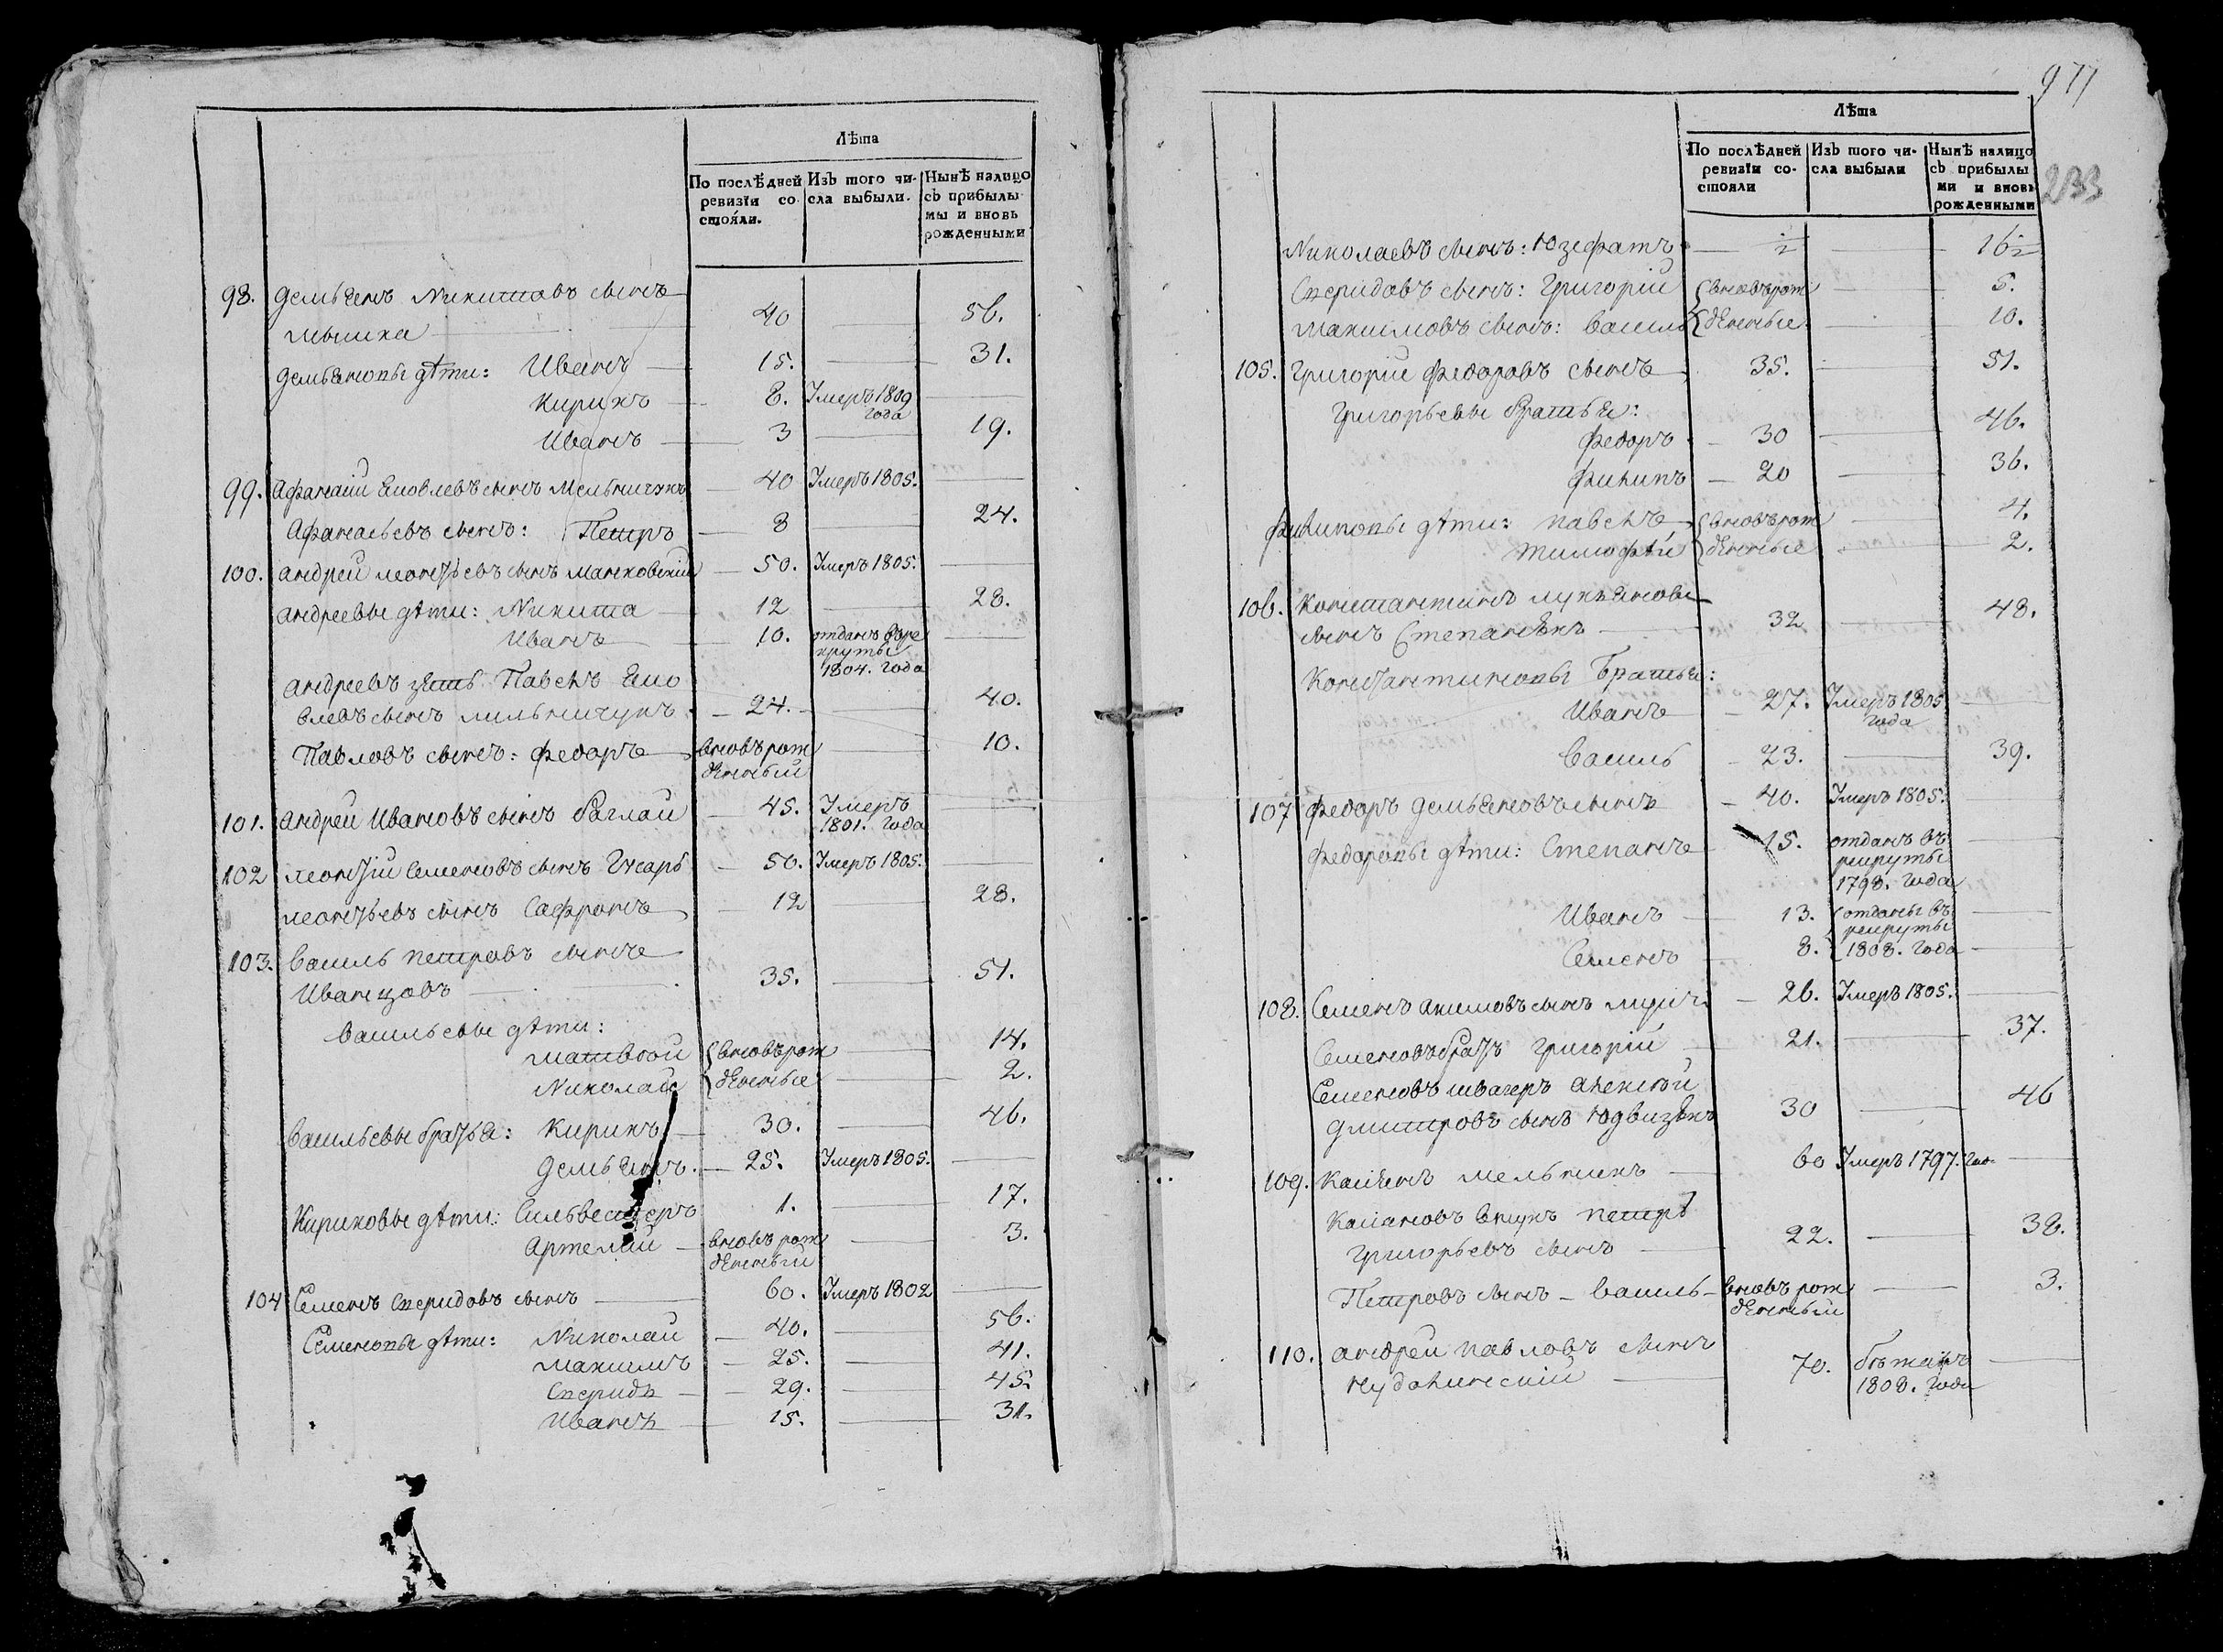 Лѣта
По послѣдней ревизїи состояли.
Изъ того числа выбыли.
Нынѣ налицо съ прибылымы и вновь рожденными
98. Демьянъ Никитовъ сынъ
Мышка 40 56.
Демьяновы дѣти: Иванъ 15. 31.
Кирикъ 8. Умеръ 1809 года
Иванъ 3 19.
99. Афанасій Яковлевъ сынъ Мельничукъ 40 Умеръ 1805.
Афанасьевъ сынъ: Петръ 8 24.
100. Андрей Леонтьевъ сынъ Манковскій 50. Умеръ 1805.
Андреевы дѣти: Никита 12 28.
Иванъ 10. отданъ въ рекруты 1804. года
Андреевъ зять Павелъ Яковлевъ сынъ Мильничукъ 24. 40.
Павловъ сынъ: Федоръ вновьрожденный 10.
101. Андрей Ивановъ сынъ Баглай 45. Умеръ 1801. года
102 Леонтій Семеновъ сынъ Гусаръ 50. Умеръ 1805.
Леонтьевъ сынъ Сафронъ 12 28.
103. Василь Петровъ сынъ
Иванцовъ 35. 51.
Васильевы дѣти:
Матвѣй {вновьрож 14.
Николай {денные 2.
Васильевы братья: Кирикъ 30. 46.
Демьянъ. 25. Умеръ 1805.
Кириковы дѣти: Сильвестеръ 1. 17.
Артемій вновь рожденный 3.
104 Семенъ Спиридовъ сынъ 60. Умеръ 1802
Семеновы дѣти: Николай 40. 56.
Максимъ 25. 41.
Спиридъ 29. 45.
Иванъ 15. 31.
977
233
Лѣта
По послѣдней ревизїи состояли
Изъ того числа выбыли
Нынѣ налицо съ прибылыми и вновь рожденными
Николаевъ сынъ: Юзефатъ ½ 16½
Спиридовъ сынъ: Григорій {вновьрож 5.
Максимовъ сынъ: Василь {денные 10.
105. Григорій Федоровъ сынъ 35. 51.
Григорьевы братья:
Федоръ 30 46.
Филипъ 20 36.
Филиповы дѣти: Павелъ {вновьрож 4.
Тимофѣй {денные 2.
106. Константинъ Лукьяновъ
сынъ Степанюкъ 32 48.
Константиновы братья:
Иванъ 27. Умеръ 1805 года
Василь 23. 39.
107 Федоръ Демьяновъ сынъ 40. Умеръ 1805.
Федоровы дѣти: Степанъ 15. отданъ въ рекруты 1798. года
Иванъ 13. {отданы въ рекруты
Семенъ 8. {1808. года
108. Семенъ Акимовъ сынъ 26. Умеръ 1805.
Семеновъ братъ Григорій 21. 37.
Семеновъ швагеръ Алексѣй
Дмитровъ сынъ 30 46
109. Касіянъ Мельникъ 60 Умеръ 1797. года
Касіановъ внукъ Петръ
Григорьевъ сынъ 22. 38.
Петровъ сынъ – Василь – вновь рожденный 3.
110. Андрей Павловъ сынъ
70. бѣжалъ 1808. года